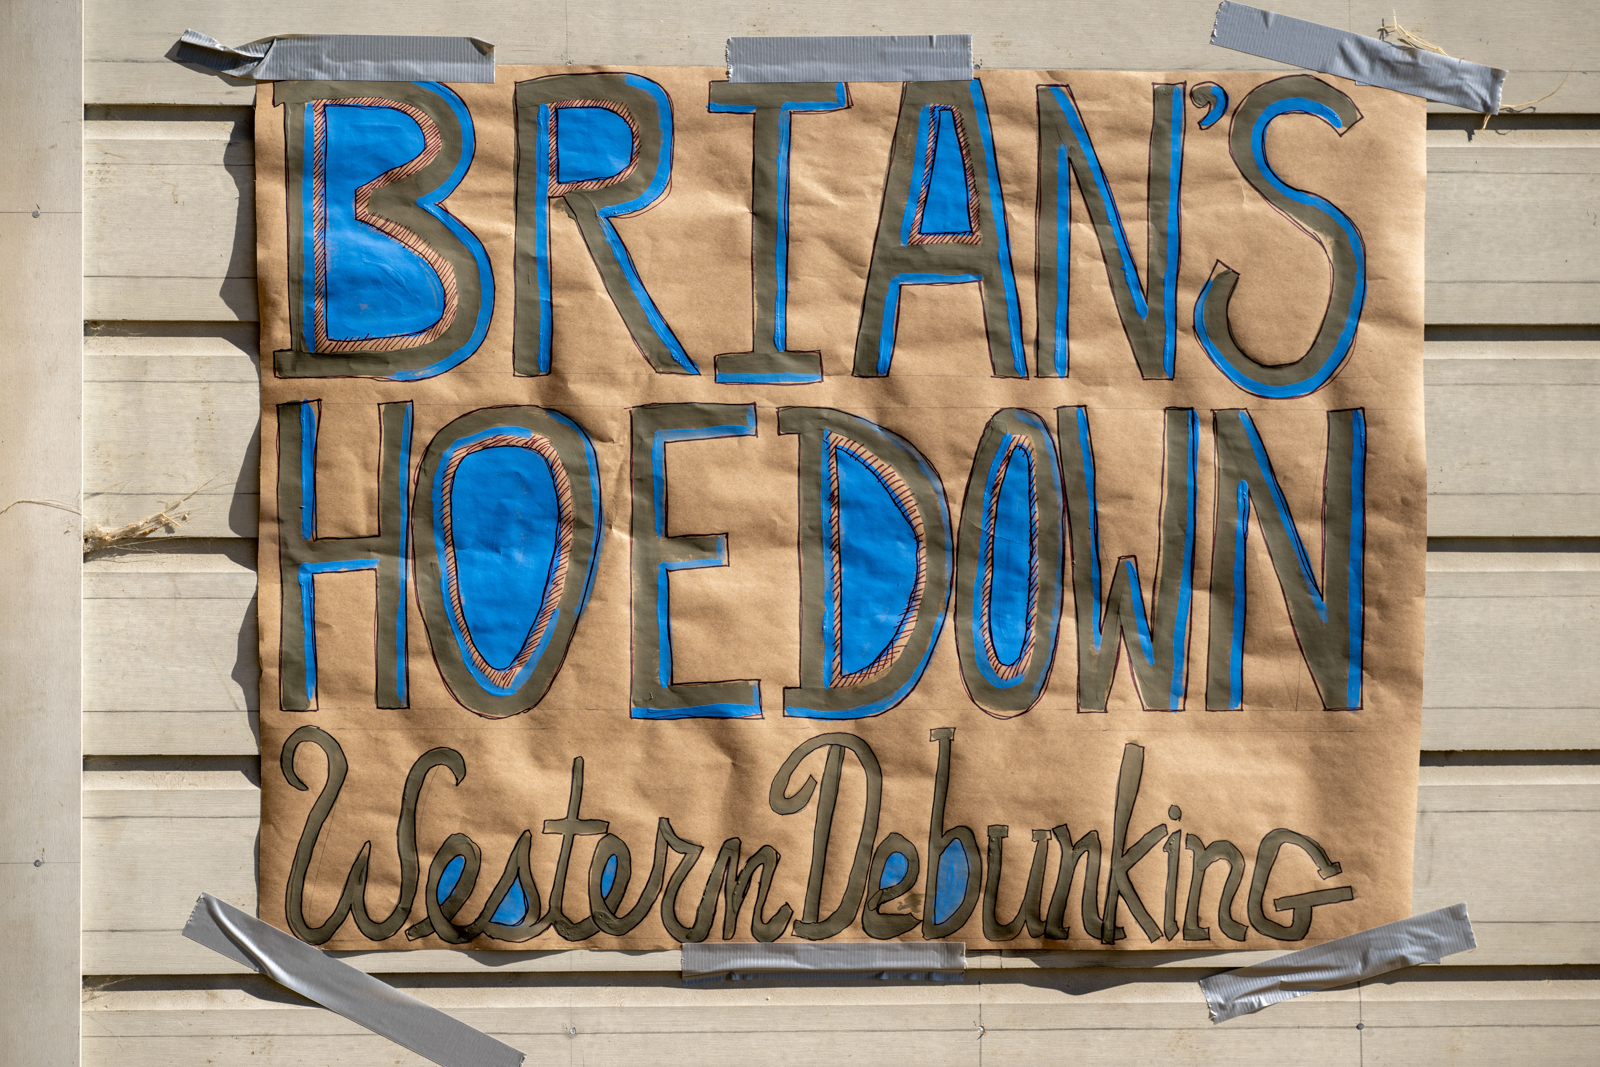 BRIAN'S
HOEDOWN
Western DebunkinG